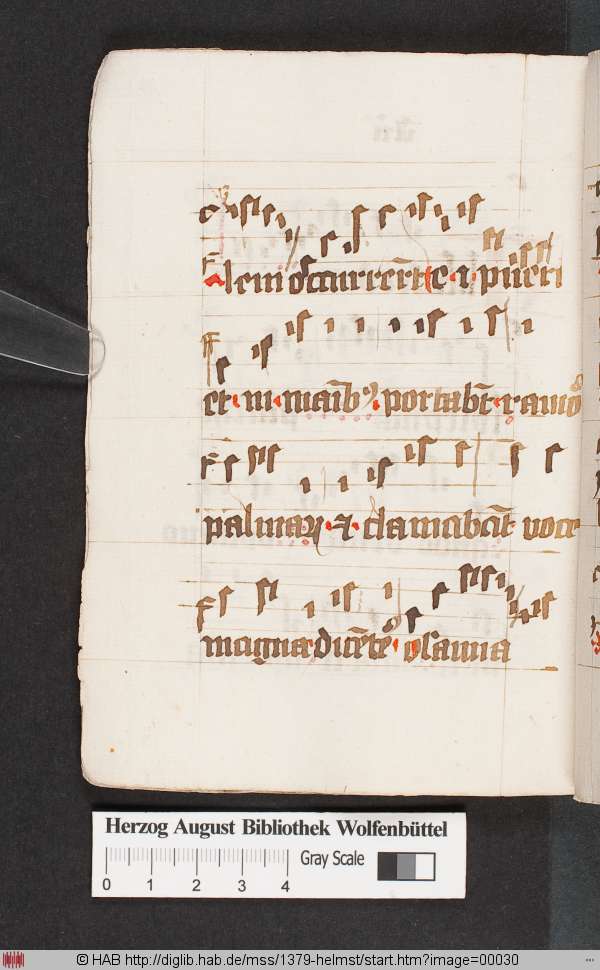 alem occurrerūt ei pueri
et in manibꝰ portabāt ramos
palmaꝝ ⁊ clamabāt voce
magna dicētes osanna
Herzog August Bibliothek Wolfenbüttel
Gray Scale
0 1 2 3 4
© HAB http://diglib.hab.de/mss/1379-helmst/start.htm?image=00030